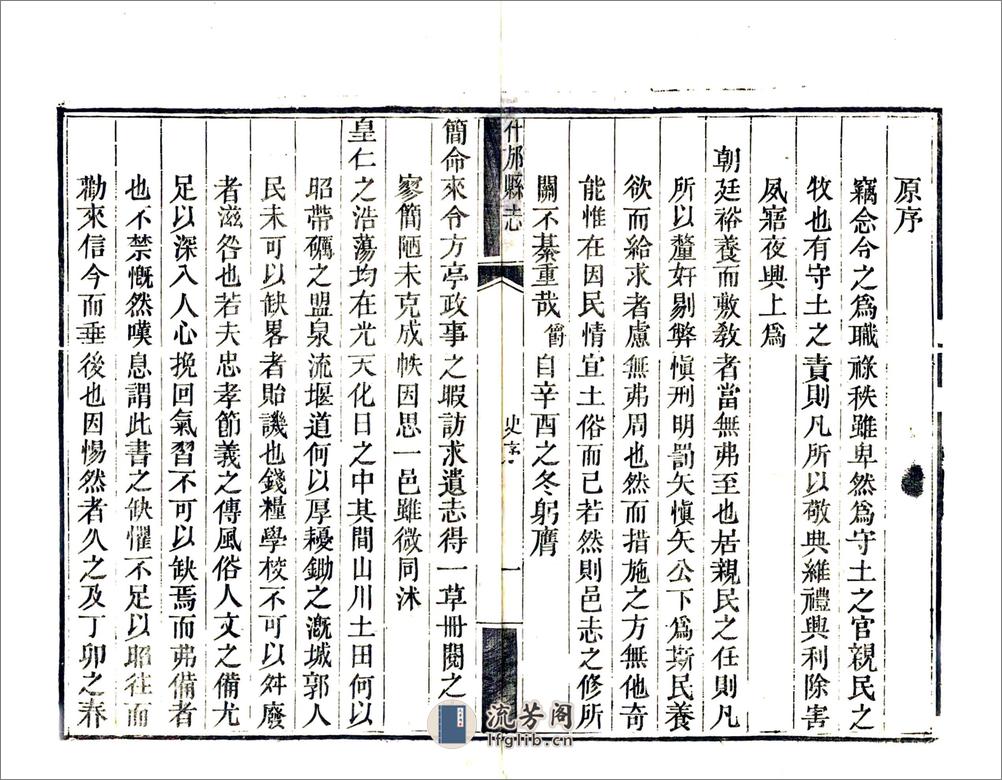 原序
竊念令之爲職祿秩雖卑然爲守土之官親民之
牧也有守土之責則凡所以敬典維禮興利除害
夙寤夜興上爲
朝廷裕養而敷敎者當無弗至也居親民之任則凡
所以釐奸剔弊愼刑明罰矢愼矢公下爲斯民養
欲而給求者慮無弗周也然而措施之方無他奇
能惟在因民情宜土俗而已若然則邑志之修所
關不綦重哉爵自辛酉之冬躬膺
什邡縣志
史序
一
簡命來令方亭政事之暇訪求遺志得一草冊閱之
寥簡陋未克成帙因思一邑雖微同沭
皇仁之浩蕩均在光天化日之中其間山川土田何以
昭帶礪之盟泉流堰道何以厚耰鋤之漑城郭人
民未可以缺畧者貽譏也錢糧學校不可以舛廢
者滋咎也若夫忠孝節義之傳風俗人文之備尤
足以深入人心挽回氣習不可以缺焉而弗備者
也不禁慨然嘆息謂此書之缺懼不足以昭往而
勸來信今而垂後也因惕然者久之及丁卯之春
流芳阁
lfglib.cn